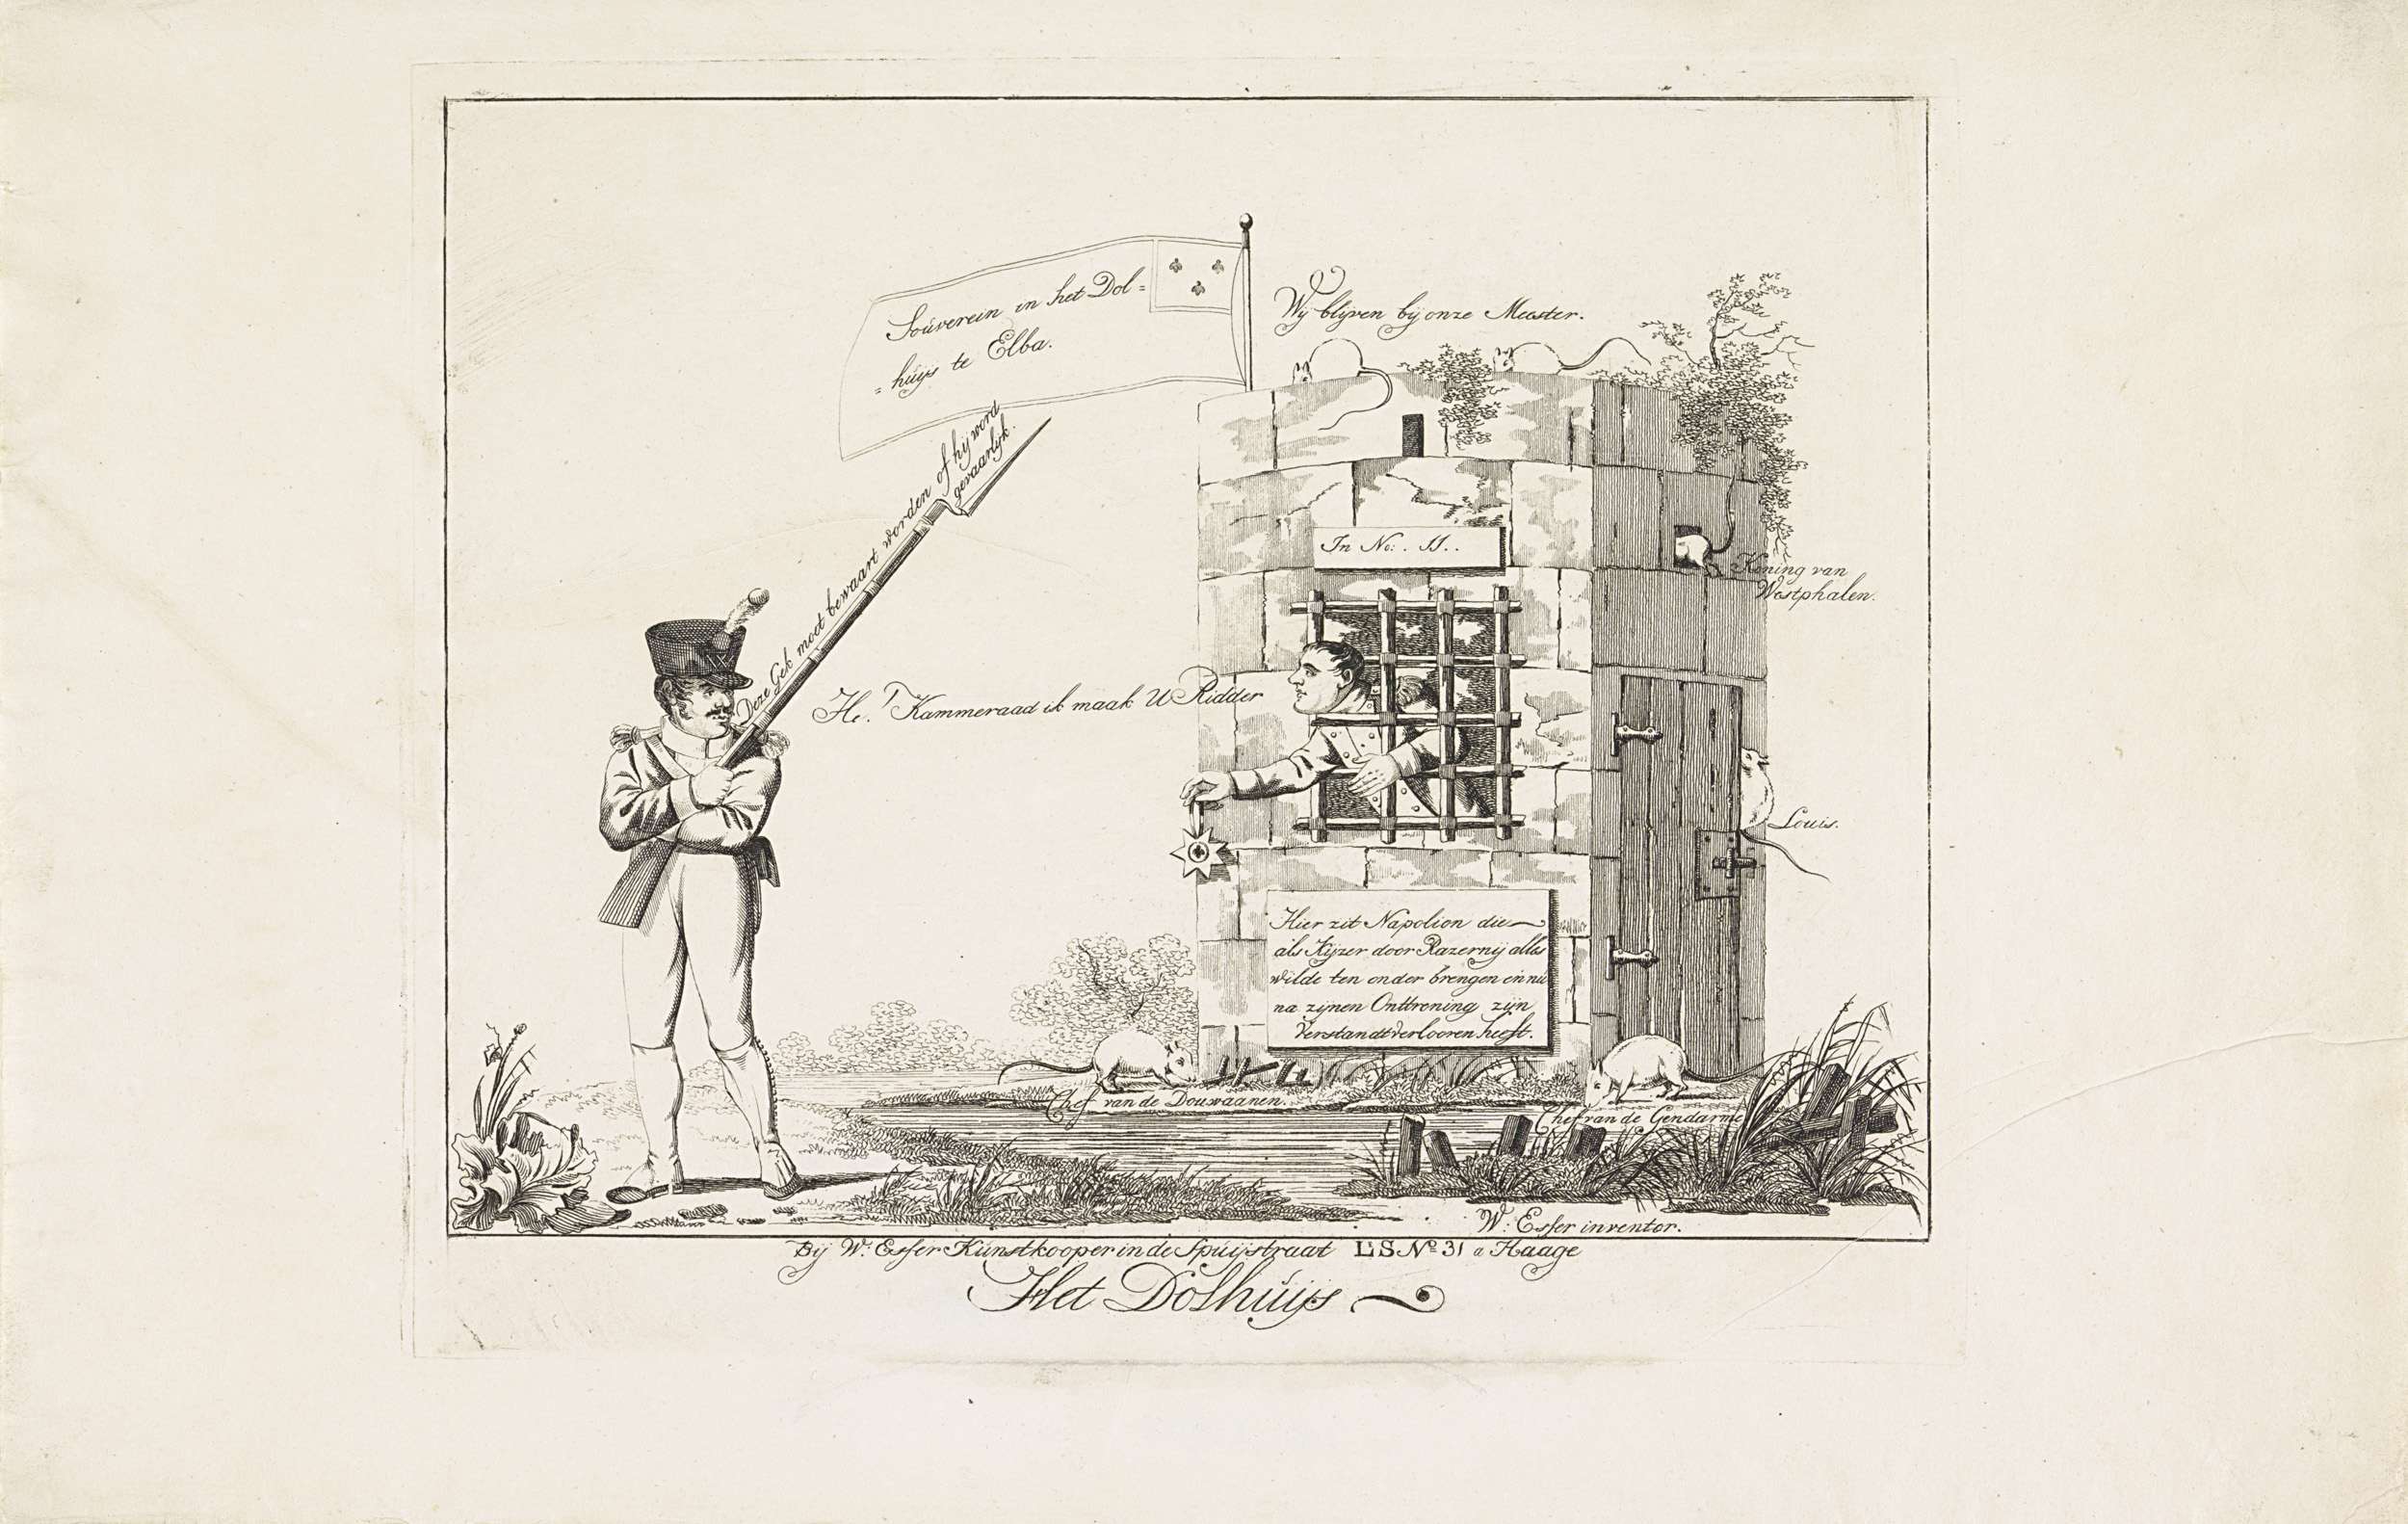 Souverein in het Dol=
=huijs te Elba.
Wij blijven bij onze Meester.
Deze Gek moet bewaart worden of hij word
gevaarlijk.
In No:. 11..
Koning van
Westphalen.
He! Kammeraad ik maak U Ridder
Louis.
Hier zit Napolion die
als Kijzer door Razernij alles
wilde ten onder brengen en nu
na zijnen Onttroning zijn
Verstandt verlooren heeft.
Chef van de Douwaanen.
Chef van de Gendarme
W: Esser inventor.
Bij W: Esser Kunstkooper in de Spuijstraat L:S No 31 a Haage
Het Dolhuijs